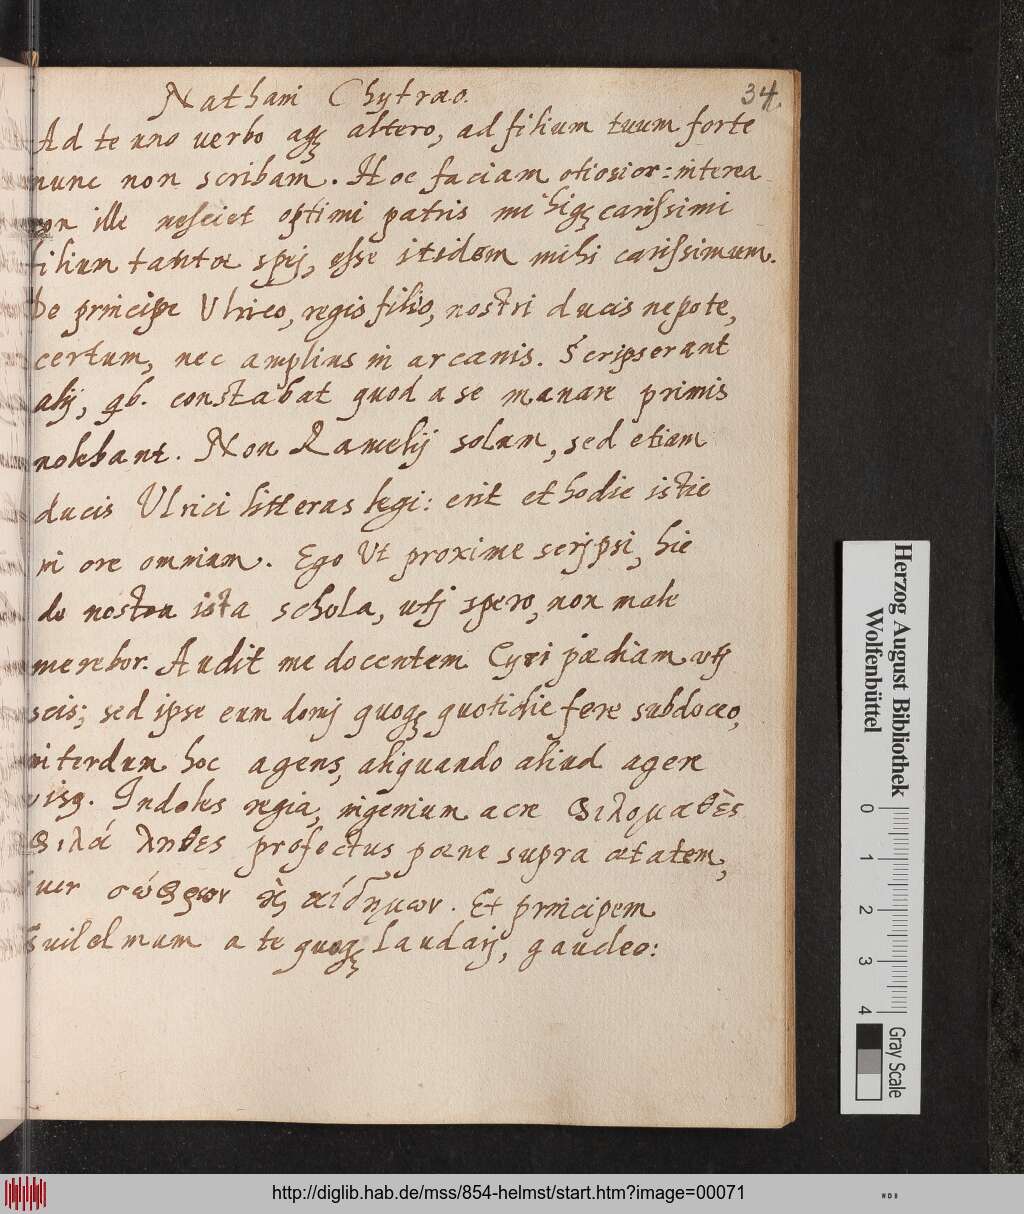 Nathani Chytraeo.
34.
Ad te uno verbo atq; altero, ad filium tuum forte
nunc non scribam. Hoc faciam otiosior: interea
non ille nesciet optimi patris mihiq; carissimi
filium tantae spej, esse itidem mihi carissimum.
De principe Ulrico, regis filio, nostri ducis nepote,
certum, nec amplius in arcanis. Scripserant
alij, qb. constabat quod a se manare primis
nolebant. Non Ramelij solum, sed etiam
ducis Ulrici litteras legi: erit et hodie istic
in ore omnium. Ego Ut proxime scripsi, hic
de nostra ista schola, utj spero, non male
merebor. Audit me docentem Cyri pædiam utj
scis; sed ipse eum domj quoq; quotidie fere subdoceo,
interdum hoc agens, aliquando aliud agere
visq. Indoles regia, ingenium acre Φιλομαθὲς
Φιλάληθες profectus pæne supra ætatem,
σώφρων καὶ αἰδήμων. Et principem
Guilelmum a te quoq; laudarj, gaudeo:
Herzog August Bibliothek
Wolfenbüttel
0 1 2 3 4
Gray Scale
http://diglib.hab.de/mss/854-helmst/start.htm?image=00071
WDB